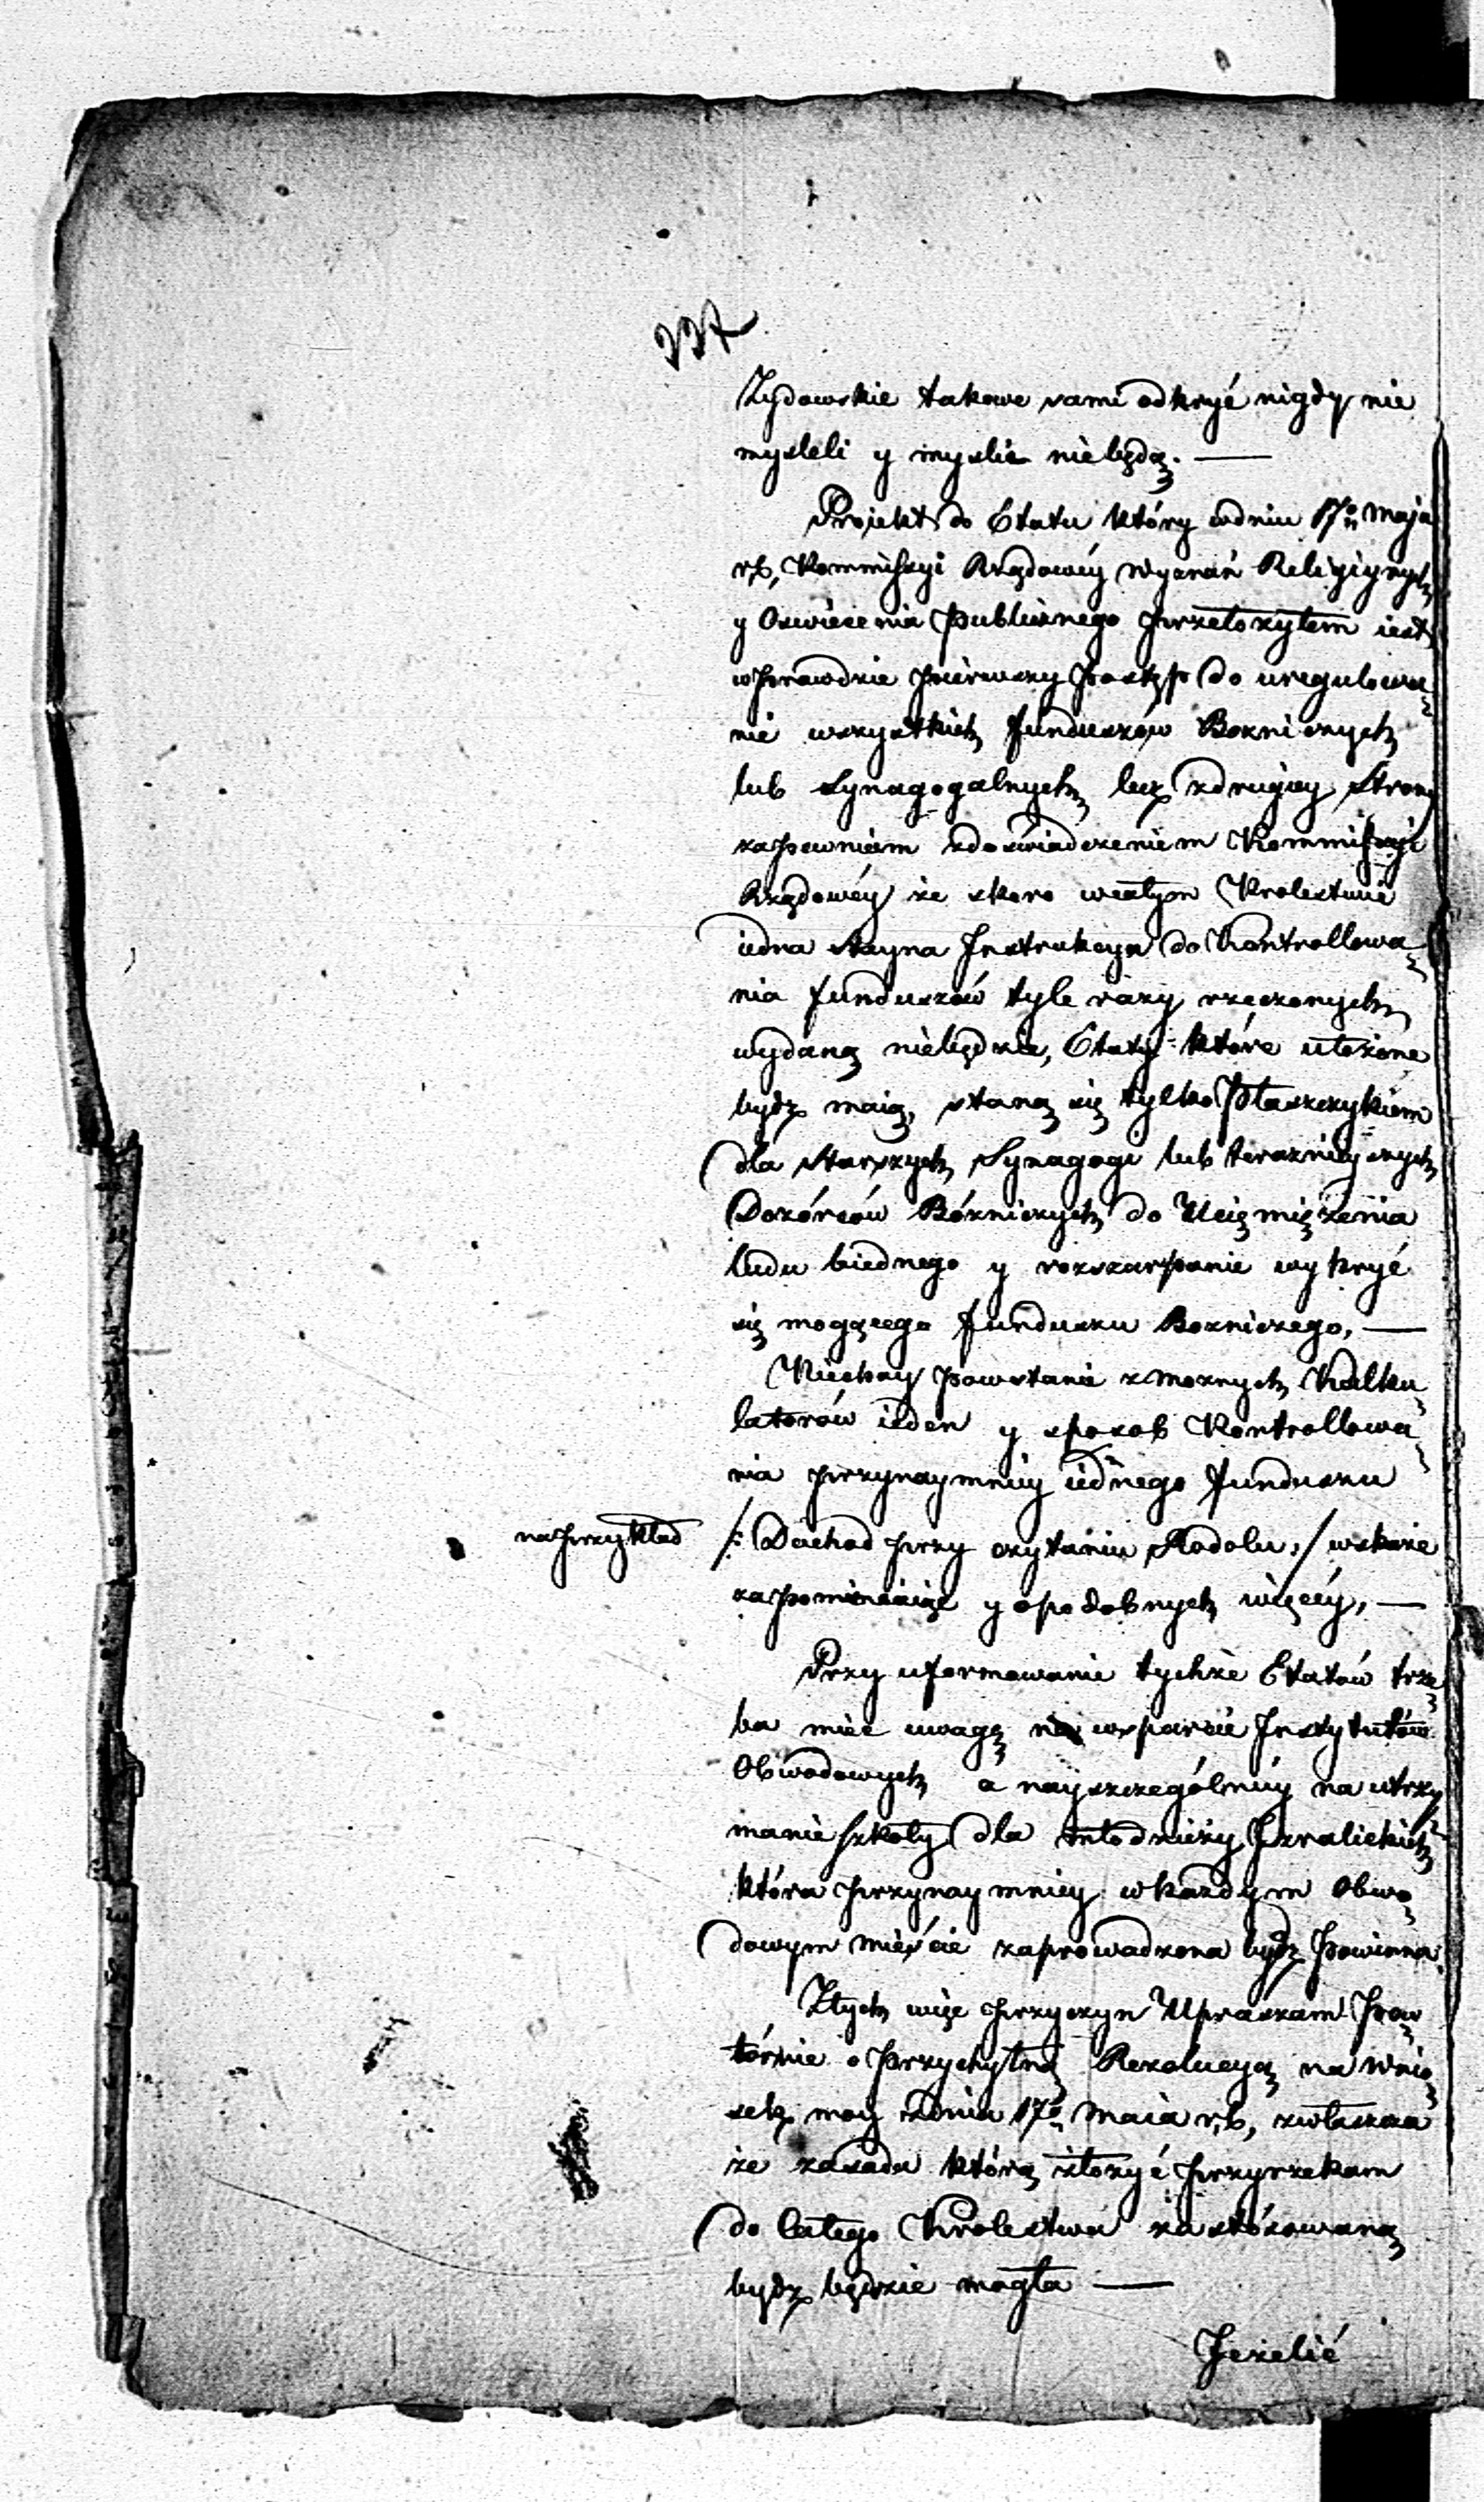 227
Zydowskie takowe sami odkryć nigdy nie
mysleli y myslić niebędą. —
Projekt do Etatu który w dniu 17º Maja
r. b. Kommissyi Rządowéy Wyznań Religiynych
y Oswiecenia Publicznego przełozyłem iest
wprawdzie pierwszy Postęp do uregulowa-
nie wszystkich funduszów Boznicznych
lub Synagogalnych lecz zdrugiey Strony
zapewniam zdoświadczeniem Kommissyi
Rządowéy ze skoro wcałym Krolestwie
iedna stayna Instrukcya do Kontrollowa-
nia funduszów tyle razy rzeczonych
wydaną niebędzie, Etaty które ułożone
bydz maią, staną się tylko Płaszczykiem
dla Starszych Synagogi lub terazniejszych
Dozórców Bózniczych do Ucięmiężenia
ludu biednego y rozszarpanie wykryć
się mogącego funduszu Bozniczego, —
Niechay powstanie z moznych Kalku-
latorów ieden y sposob Kontrollowa-
nia przynaymniey iednego funduszu
na przykład /: Dochod przy czytaniu Rodołu, / wskaże
zapominaiąc y opodobnych więcéy, —
Przy uformowanie tychże Etatów trze-
ba miec uwagę na wsparcie Instytutów
Obwodowych a nayszczególniéy na utrzy-
manie szkoły dla młodzieży Izraelickich
która przynaymniey w kazdym Obwo-
dowym mieście zaprowadzona bydz powinna.
Ztych więc przyczyn Upraszam Pow-
tórnie o przychylną Rezolucyą na wnio-
sek moy zdnia 17º Maia r. b, zwłaszcza
że zasada którą złozyć przyrzekam
do całego Krolestwa zastósowaną
bydz będzie mogła —
Jezelić